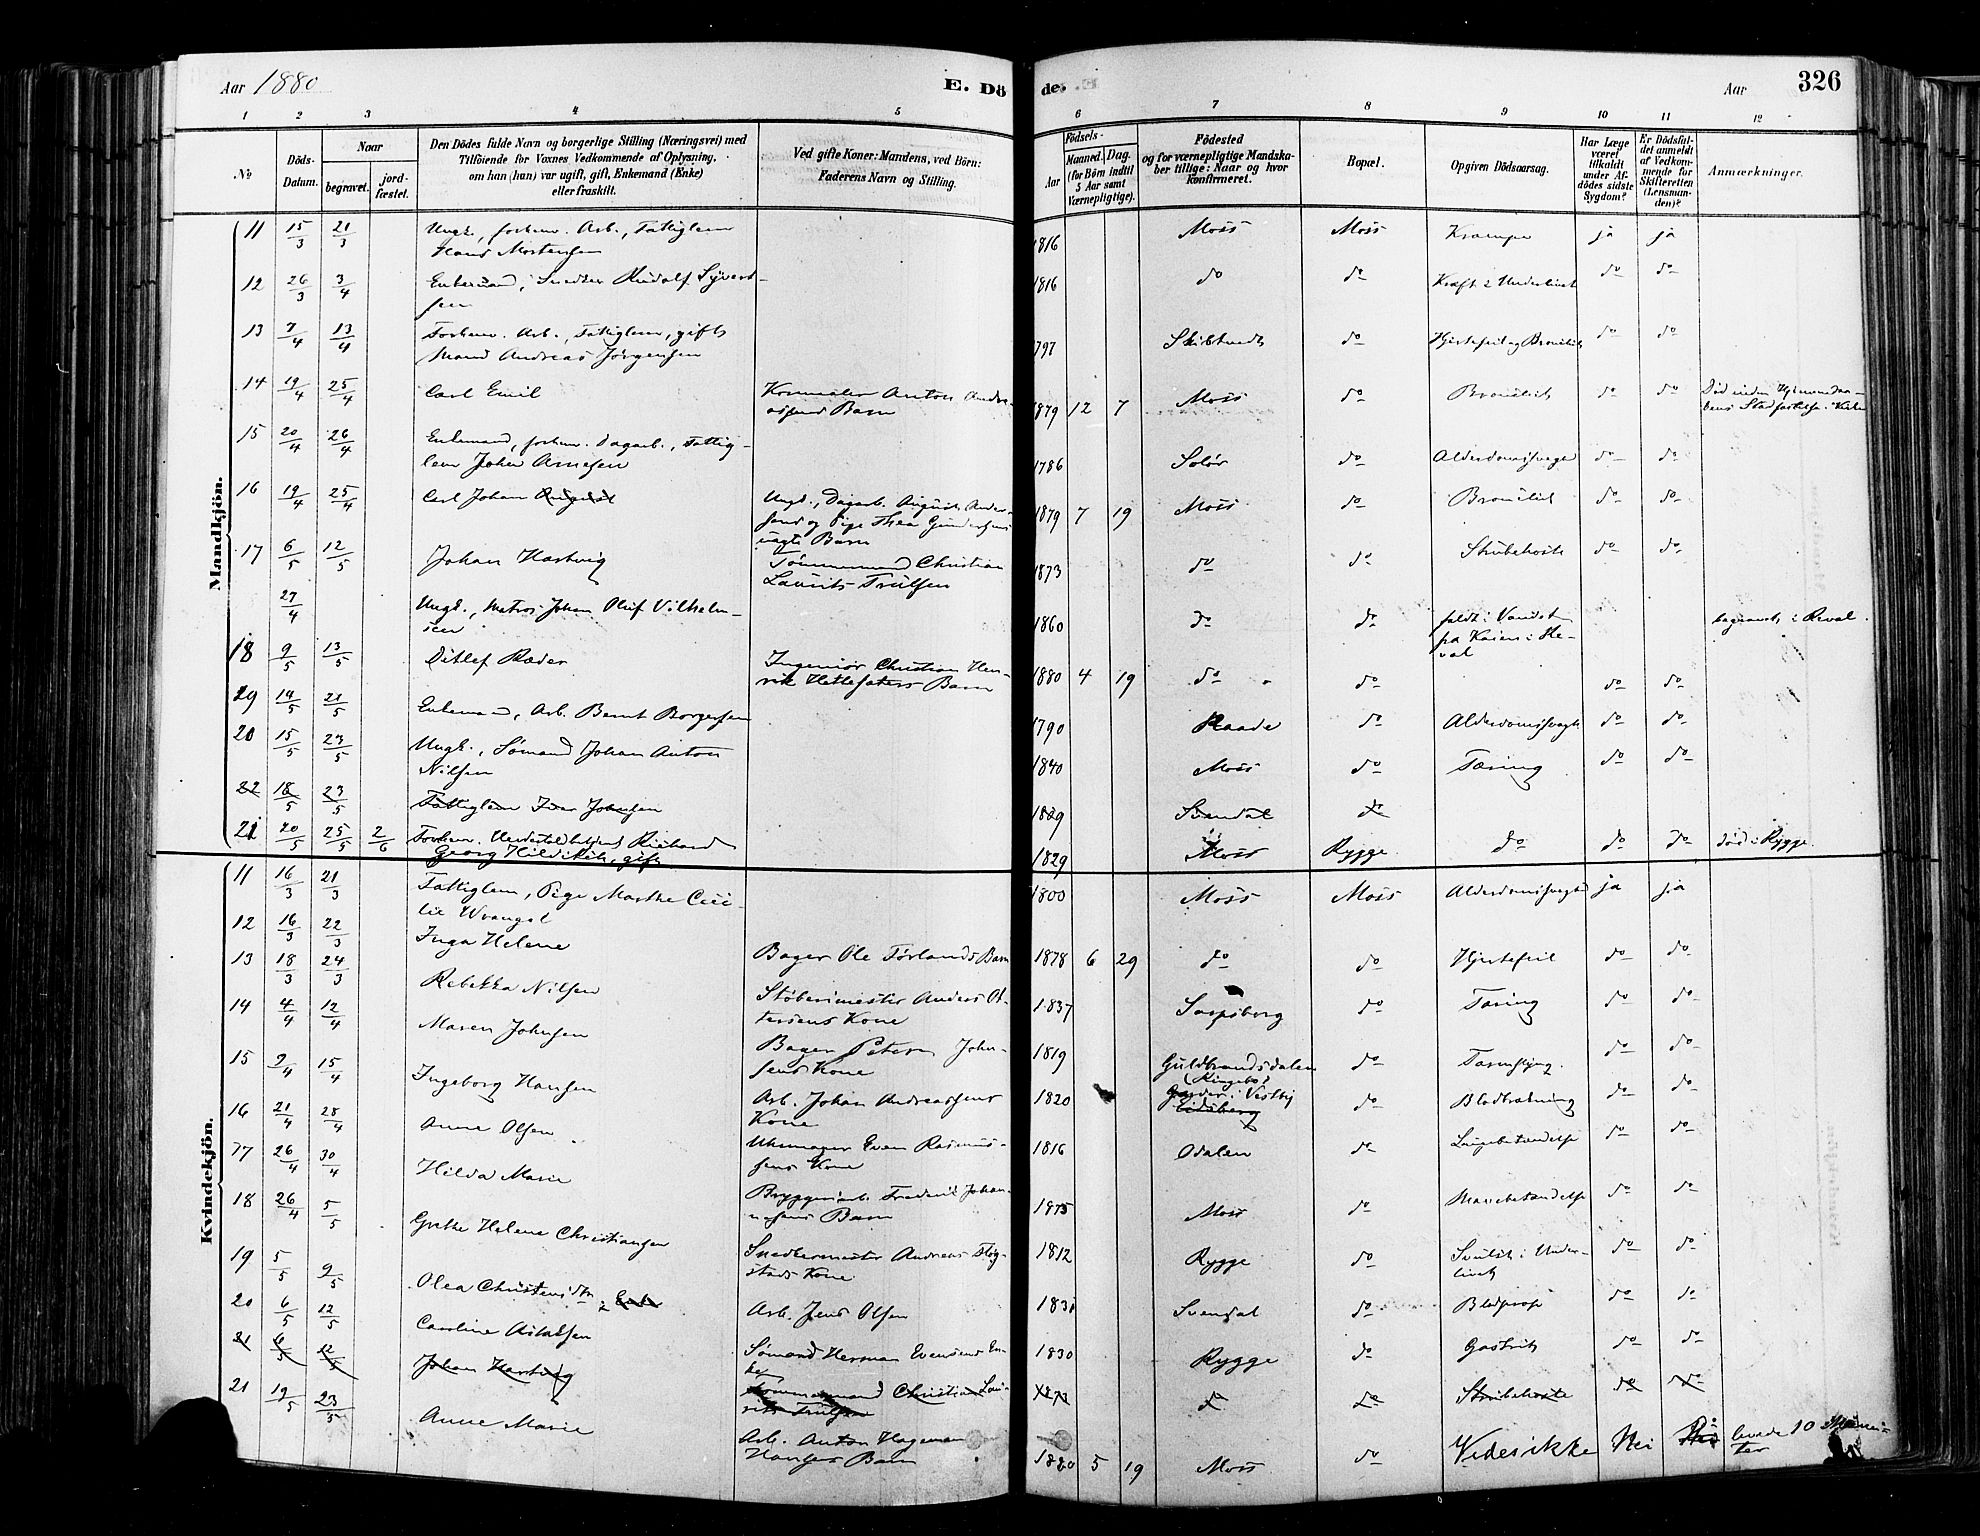 Aar 1880
E. Dö
de.
Aar
326
1 2 3 4 5 6 7 8 9 10 11 12
No
Döds-Datum.
Naar
begravet.
jord-fæstet.
Den Dödes fulde Navn og borgerlige Stilling (Næringsvei) med
Tilföiende for Voxnes Vedkommende af Oplysning,
om han (hun) var ugift, gift, Enkemand (Enke)
eller fraskilt.
Ved gifte Koner: Mandens, ved Börn:
Faderens Navn og Stilling.
Födsels-
Aar
Maaned.
Dag.
(for Börn indtil
5 Aar samt
Værnepligtige).
Födested
og for værnepligtige Mandska-
ber tillige: Naar og hvor
konfirmeret.
Bopæl.
Opgiven Dödsaarsag.
Har Læge
været
tilkaldt
under Af-
dödes sidste
Sygdom?
Er Dödsfal-
det anmeldt
af Vedkom-
mende for
Skifteretten
(Lensman-
den)?
Anmærkninger.
Mandkjön.
11 15/3 21/3 Ungk., forhenv. Arb., Fattiglem
Hans Mortensen 1816 Moss Moss Krampe ja ja
12 26/3 3/4 Enkemand, Snedker Rudolf Syvert-
sen 1816 do do Kræft i Underlivet do do
13 7/4 13/4 Forhenv. Arb., Fattiglem, gift
Mand Andreas Jørgensen 1797 Skibtvedt do Hjertefeil og Bronchit do do
14 19/4 25/4 Carl Emil Kornmaler Anton Andre-
asens Barn 1879 12 7 Moss do Bronchit do do Død inden Hjemmedaa-
bens Stadfæstelse i Kirken
15 20/4 26/4 Enkemand, forhenv. Dagarb., Fattig-
lem Johan Arnesen 1786 Solør do Alderdomssvaghed do do
16 19/4 25/4 Carl Johan August Ungk., Dagarb. August Ander-
sens og Pige Thea Gundersens
uægte Barn 1879 7 19 Moss do Bronchit do do
17 6/5 12/5 Johan Hartvig Tømmermand Christian
Laurits Trulsen 1873 do do Strubehoste do do
27/4 Ungk., Matros Johan Oluf Vilhelm-
sen 1860 do do faldt i Vandet
fra Kaien i Re-
val begravet i Reval.
18 9/5 13/5 Ditlef Ræder Ingeniør Christian Hen-
rik Barn 1880 4 19 do do do do
29 14/5 21/5 Enkemand, Arb. Bernt Borgersen 1790 Raade do Alderdomssvaghed do do
20 15/5 23/5 Ungk., Sømand Johan Anton
Nilsen 1840 Moss do Tæring do do
22 18/5 23/5 Fattiglem Iver Johnsen 1829 Svendal do
21 20/5 25/5 2/6 Forhenv. Richard
Georg gift 1829 Moss Rygge do do do død i Rygge.
Kvindekjön.
11 16/3 21/3 Fattiglem, Pige Marthe Ceci-
lie Wrangel 1800 Moss Moss Alderdomssvaghed ja ja
12 16/3 22/3 Inga Helene Bager Ole Førlands Barn 1878 6 29 do do Hjertefeil do do
13 18/3 24/3 Rebekka Nilsen Støberimester Anders Ot-
tersens Kone 1837 Sarpsborg do Tæring do do
14 4/4 12/4 Maren Johnsen Bager Peter John-
sens Kone 1819 Guldbrandsdalen
(Ringebo) do do do
15 9/4 15/4 Ingeborg Hansen Arb. Johan Andreassens
Kone 1820 Garder i Vestby
Eidsberg do Blodbrækning do do
16 21/4 28/4 Anne Olsen Uhrmager Even Rasmus-
sens Kone 1816 Odalen do Lungebetændelse do do
17 26/4 30/4 Hilda Marie Bryggeriarb. Frederik Johan-
nesens Barn 1875 Moss do do do
18 26/4 5/5 Grethe Helene Christiansen Snedkermester Andreas Fløg-
stads Kone 1812 Rygge do Svulst i Under-
livet do do
19 5/5 9/5 Olea Christensdtr Enke Arb. Jens Olsen Svendal do do do
20 6/5 12/5 Caroline Aslaksen Sømand Herman Evensens En-
ke 1830 Rygge do Gastrit do do
21 6/5 12/5 Johan Hartvig Tømmermand Christian Lau-
rits Trulsen 1873 do do Strubehoste do do
21 19/5 23/5 Anne Marie Arb. Anton Hageman
Hansens Barn 1880 5 19 Moss do Vides ikke Nei Nei levede 10 Minu-
ter